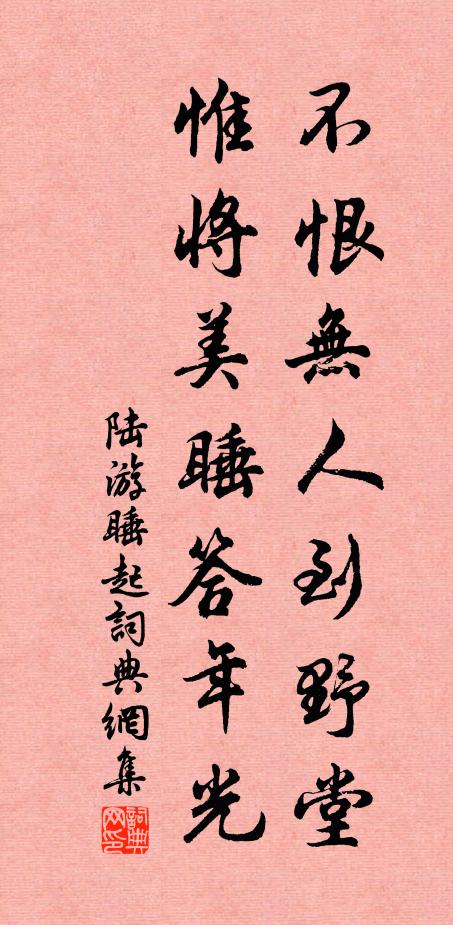 不恨無人到野堂
惟將美睡答年光
陸游睡起詞典網集
詞典网印